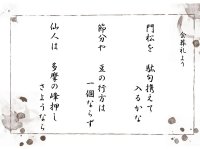 会葬礼より
門松を 駄句携えて
入るかな
節分や 豆の行方は
一個ならず
仙人は 多摩の峰押し
さようなら